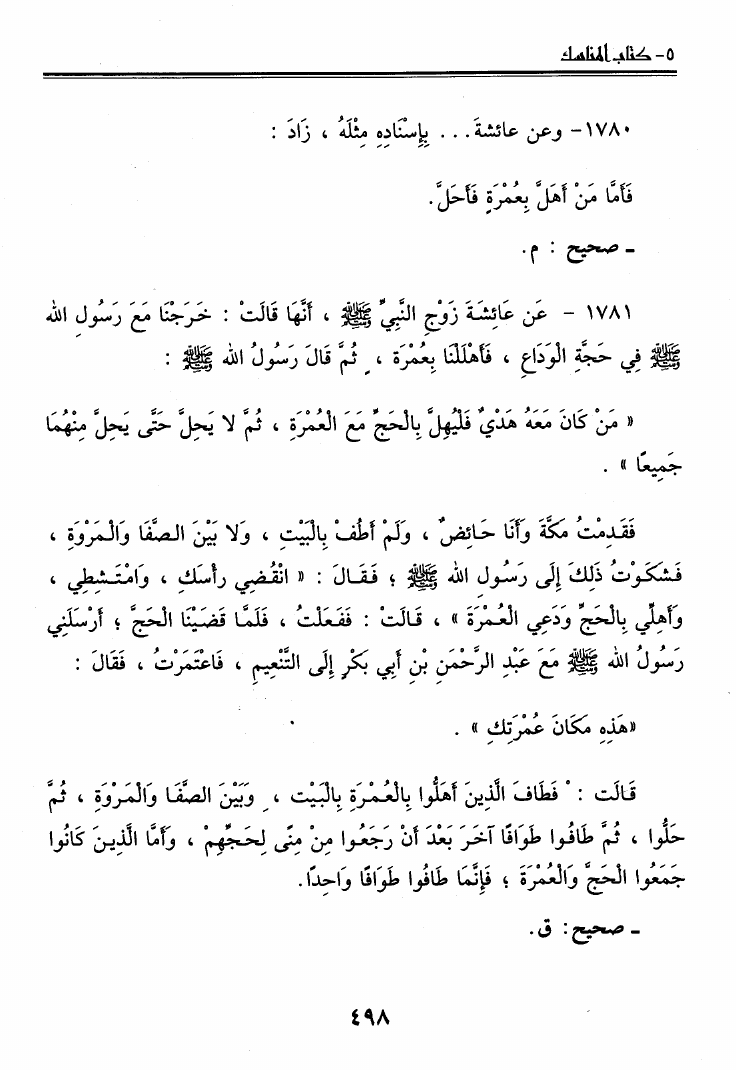 ٥- كتاب المناسك
١٧٨٠- وعن عائشةَ . . . بِإِسْنَادِهِ مِثْلَهُ ، زَادَ :
فَأَمَّا مَنْ أَهَلَّ بِعُمْرَةٍ فَأَحَلَّ.
ـ صحيح : م.
١٧٨١ - عَن عَائِشَةَ زَوْجِ النَّبِيِّ ﷺ ، أَنَّهَا قَالَتْ : خَرَجْنَا مَعَ رَسُولِ الله
ﷺ فِي حَجَّةِ الْوَدَاعِ ، فَأَهْلَلْنَا بِعُمْرَة ، ثُمَّ قَالَ رَسُولُ الله ﷺ :
« مَنْ كَانَ مَعَهُ هَدْيٌ فَلْيُهِلَّ بِالْحَجِّ مَعَ الْعُمْرَةِ ، ثُمَّ لا يَحِلَّ حَتَّى يَحِلَّ مِنْهُمَا
جَمِيعًا » .
فَقَدِمْتُ مَكَّةَ وَأَنَا حَائِضٌ ، وَلَمْ أَطُفْ بِالْبَيْتِ ، وَلا بَيْنَ الصَّفَا وَالْمَرْوَةِ ،
فَشَكَوْتُ ذَلِكَ إِلَى رَسُولِ الله ﷺ ؛ فَقَالَ : « انْقُضِي رأْسَكِ ، وَامْتَشِطِي ،
وَأَهِلِّي بِالْحَجِّ وَدَعِي الْعُمْرَةَ » ، قَالَتْ : فَفَعَلْتُ ، فَلَمَّا قَضَيْنَا الْحَجَّ ؛ أَرْسَلَنِي
رَسُولُ الله ﷺ مَعَ عَبْدِ الرَّحْمَنِ بْنِ أَبِي بَكْرٍ إِلَى التَّنْعِيمِ ، فَاعْتَمَرْتُ ، فَقَالَ :
«هَذِهِ مَكَانَ عُمْرَتِكِ » .
قَالَت : فَطَافَ الَّذِينَ أَهَلُّوا بِالْعُمْرَةِ بِالْبَيْت ، وَبَيْنَ الصَّفَا وَالْمَرْوَةِ ، ثُمَّ
حَلُّوا ، ثُمَّ طَافُوا طَوَافًا آخَرَ بَعْدَ أَنْ رَجَعُوا مِنْ مِنًى لِحَجِّهِمْ ، وَأَمَّا الَّذِينَ كَانُوا
جَمَعُوا الْحَجَّ وَالْعُمْرَةَ ؛ فَإِنَّمَا طَافُوا طَوَافًا وَاحِدًا.
ـ صحيح: ق.
٤٩٨